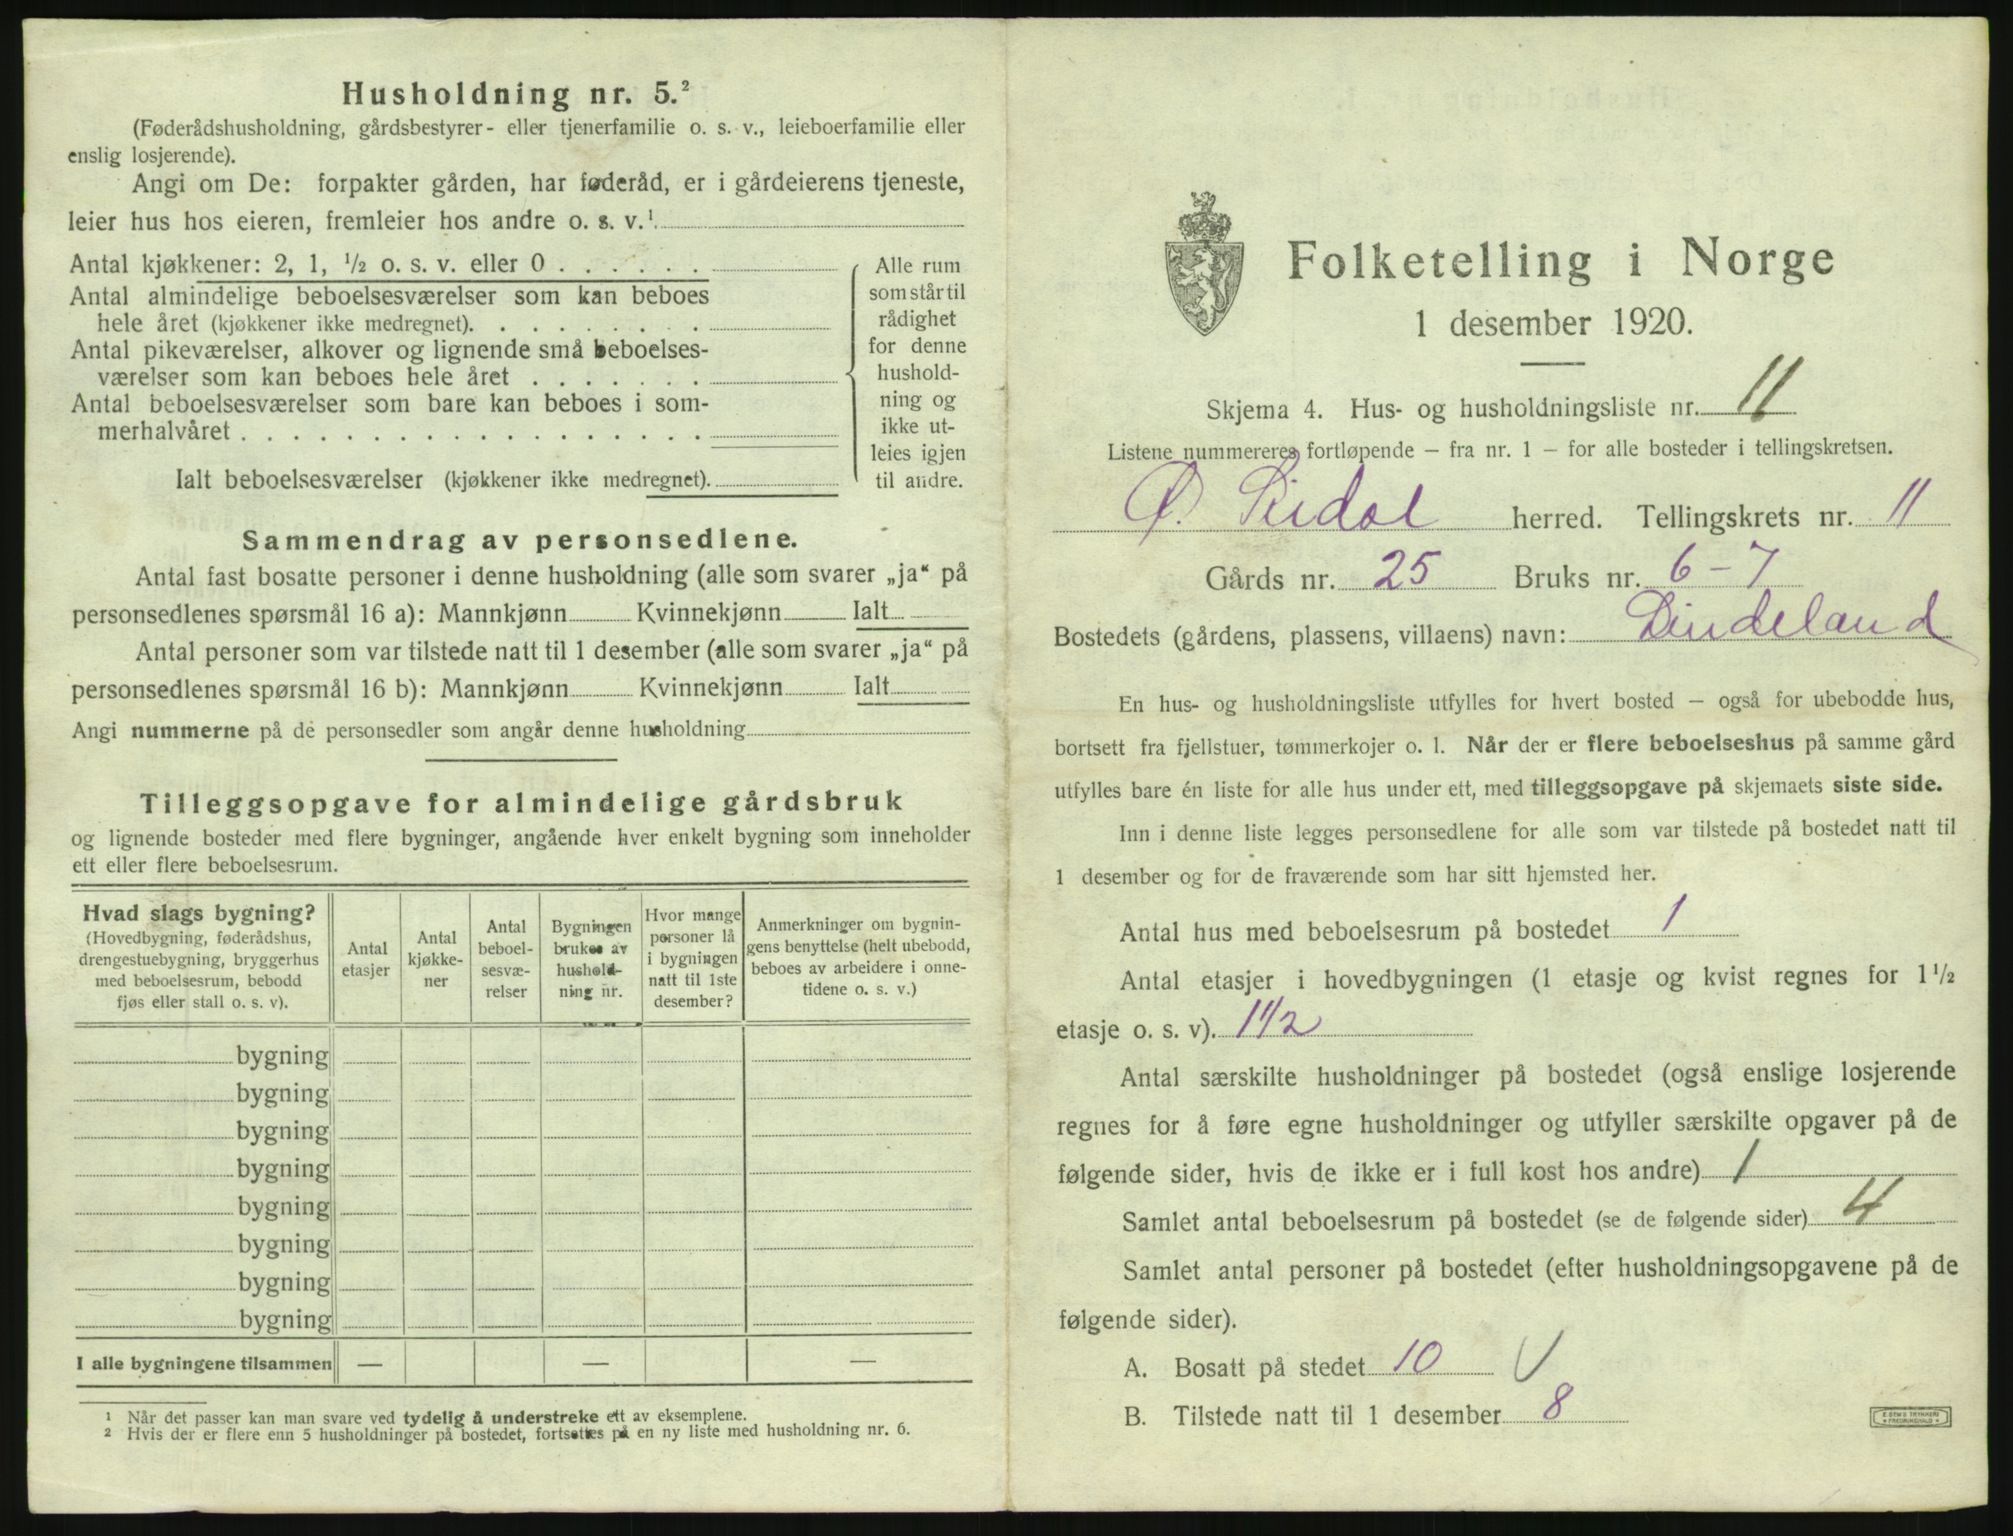 Husholdning nr. 5.²
(Føderådshusholdning, gårdsbestyrer- eller tjenerfamilie o. s. v., leieboerfamilie eller
enslig losjerende).
Angi om De: forpakter gården, har føderåd, er i gårdeierens tjeneste,
leier hus hos eieren, fremleier hos andre o. s. v.¹
Antal kjøkkener: 2, 1, ½ o. s. v. eller 0 . . . . . .
Antal almindelige beboelsesværelser som kan beboes
hele året (kjøkkener ikke medregnet). . . . . . . . .
Antal pikeværelser, alkover og lignende små beboelses-
værelser som kan beboes hele året . . . . . . .
Antal beboelsesværelser som bare kan beboes i som-
merhalvåret . . . . . . . . . . . . . . . . . .
Ialt beboelsesværelser (kjøkkener ikke medregnet).
Alle rum
som står til
rådighet
for denne
hushold-
ning og
ikke ut-
leies igjen
til andre.
Sammendrag av personsedlene.
Antal fast bosatte personer i denne husholdning (alle som svarer „ja“ på
personsedlenes spørsmål 16 a): Mannkjønn Kvinnekjønn Ialt
Antal personer som var tilstede natt til 1 desember (alle som svarer „ja“ på
personsedlenes spørsmål 16 b): Mannkjønn Kvinnekjønn Ialt
Angi nummerne på de personsedler som angår denne husholdning
Tilleggsopgave for almindelige gårdsbruk
og lignende bosteder med flere bygninger, angående hver enkelt bygning som inneholder
ett eller flere beboelsesrum.
Hvad slags bygning?
(Hovedbygning, føderådshus,
drengestuebygning, bryggerhus
med beboelsesrum, bebodd
fjøs eller stall o. s. v).
Antal
etasjer
Antal
kjøkke-
ner
Antal
beboel-
sesvæ-
relser
Bygningen
brukes av
hushold-
ning nr.
Hvor mange
personer lå
i bygningen
natt til 1ste
desember?
Anmerkninger om bygnin-
gens benyttelse (helt ubebodd,
beboes av arbeidere i onne-
tidene o. s. v.)
bygning
bygning
bygning
bygning
bygning
bygning
bygning
bygning
I alle bygningene tilsammen — — —
¹ Når det passer kan man svare ved tydelig å understreke ett av eksemplene.
² Hvis der er flere enn 5 husholdninger på bostedet, fortsettes på en ny liste med husholdning nr. 6.
Folketelling i Norge
1 desember 1920.
Skjema 4. Hus- og husholdningsliste nr. 11
Listene nummereres fortløpende – fra nr. 1 – for alle bosteder i tellingskretsen.
Ø. Sirdal herred. Tellingskrets nr. 11
Gårds nr. 25 Bruks nr. 6-7
Bostedets (gårdens, plassens, villaens) navn: Lindeland
En hus- og husholdningsliste utfylles for hvert bosted – også for ubebodde hus,
bortsett fra fjellstuer, tømmerkojer o. l. Når der er flere beboelseshus på samme gård
utfylles bare én liste for alle hus under ett, med tilleggsopgave på skjemaets siste side.
Inn i denne liste legges personsedlene for alle som var tilstede på bostedet natt til
1 desember og for de fraværende som har sitt hjemsted her.
Antal hus med beboelsesrum på bostedet 1
Antal etasjer i hovedbygningen (1 etasje og kvist regnes for 1½
etasje o. s. v). 1 1/2
Antal særskilte husholdninger på bostedet (også enslige losjerende
regnes for å føre egne husholdninger og utfyller særskilte opgaver på de
følgende sider, hvis de ikke er i full kost hos andre) 1
Samlet antal beboelsesrum på bostedet (se de følgende sider) 4
Samlet antal personer på bostedet (efter husholdningsopgavene på de
følgende sider).
A. Bosatt på stedet 10 V
B. Tilstede natt til 1 desember 8